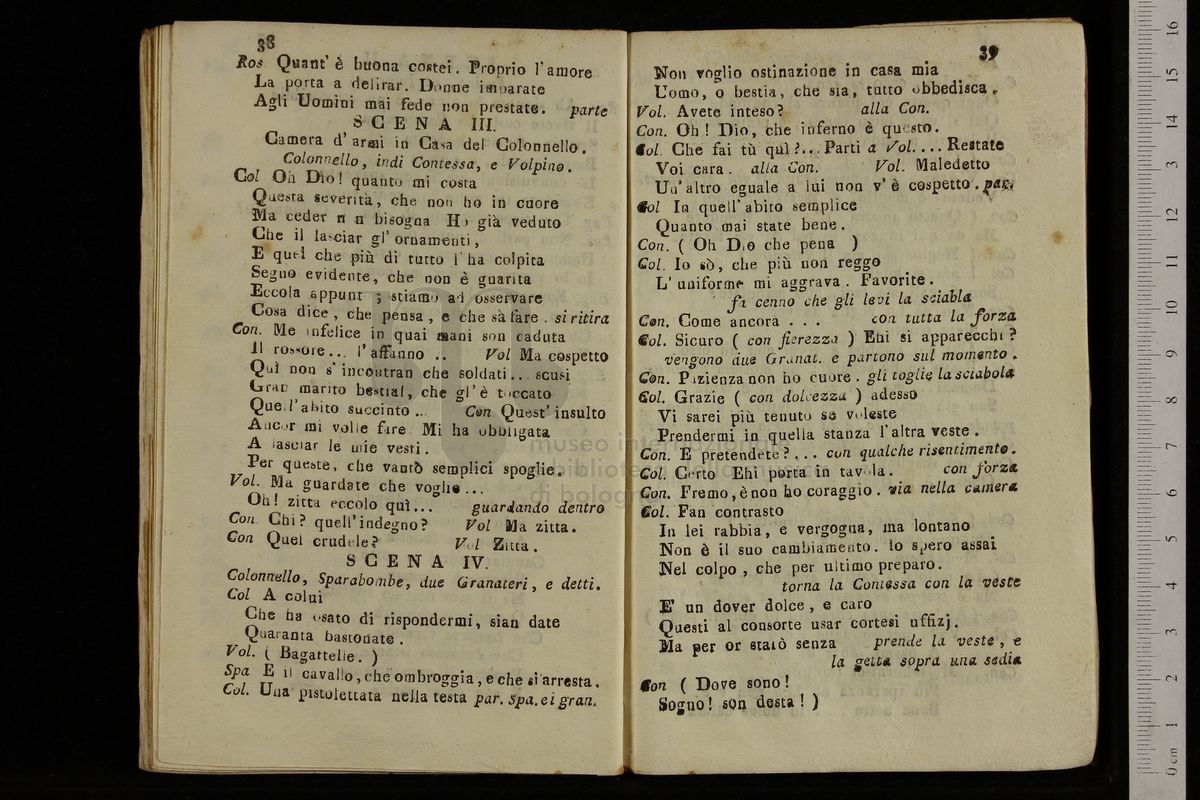 38
Ros Quant' è buona costei. Proprio l'amore
La porta a delirar. Donne imparate
Agli Uomini mai fede non prestate. parte
SCENA III.
Camera d'armi in Casa del Colonnello.
Colonnello, indi Contessa, e Volpino.
Col Oh Dio! quanto mi costa
Questa severità, che non ho in cuore
Ma ceder n n bisogna Ho già veduto
Che il lasciar gl' ornamenti,
E quel che più di tutto l'ha colpita
Segno evidente, che non è guarita
Eccola appunt ; stiamo ad osservare
Cosa dice, che pensa, e che sà fare. si ritira
Con. Me infelice in quai mani son caduta
Il rossore... l'affanno .. Vol Ma cospetto
Quì non s'incontran che soldati.. scusi
Gran marito bestial, che gl'è toccato
Quell'abito succinto .. Con Quest' insulto
Ancor mi volle fare Mi ha obbligata
A lasciar le mie vesti.
Per queste, che vantò semplici spoglie.
Vol. Ma guardate che voglie...
Oh! zitta eccolo quì... guardando dentro
Con Chi? quell'indegno? Vol Ma zitta.
Con Quel crudele? Vol Zitta.
SCENA IV.
Colonnello, Sparabombe, due Granateri, e detti.
Col A colui
Che ha osato di rispondermi, sian date
Quaranta bastonate.
Vol. ( Bagattelle. )
Spa E il cavallo, che ombroggia, e che si arresta.
Col. Una pistolettata nella testa par. Spa. e i gran.
39
Non voglio ostinazione in casa mia
Uomo, o bestia, che sia, tutto obbedisca.
Vol. Avete inteso? alla Con.
Con. Oh! Dio, che inferno è questo.
Col. Che fai tù quì?... Parti a Vol.... Restate
Voi cara. alla Con. Vol. Maledetto
Un'altro eguale a lui non v'è cospetto. par.
Col In quell'abito semplice
Quanto mai state bene.
Con. ( Oh Dio che pena )
Col. Io sò, che più non reggo
L'uniforme mi aggrava. Favorite.
fa cenno che gli levi la sciabla
Con. Come ancora . . . con tutta la forza
Col. Sicuro ( con fierezza ) Ehi si apparecchi?
vengono due Granat. e partono sul momento.
Con. Pazienza non ho cuore. gli toglie la sciabola
Col. Grazie ( con dolcezza ) adesso
Vi sarei più tenuto se voleste
Prendermi in quella stanza l'altra veste.
Con. E pretendete?... con qualche risentimento.
Col. Certo Ehi porta in tavola. con forza
Con. Fremo, è non ho coraggio. via nella camera
Col. Fan contrasto
In lei rabbia, e vergogna, ma lontano
Non è il suo cambiamento. Io spero assai
Nel colpo, che per ultimo preparo.
torna la Contessa con la veste
E' un dover dolce, e caro
Questi al consorte usar cortesi uffizj.
Ma per or starò senza prende la veste, e
la getta sopra una sedia
Con ( Dove sono!
Sogno! son desta! )
museo internazionale
biblioteca della musica
di bologna
0 cm 1 2 3 4 5 6 7 8 9 10 11 12 13 14 15 16